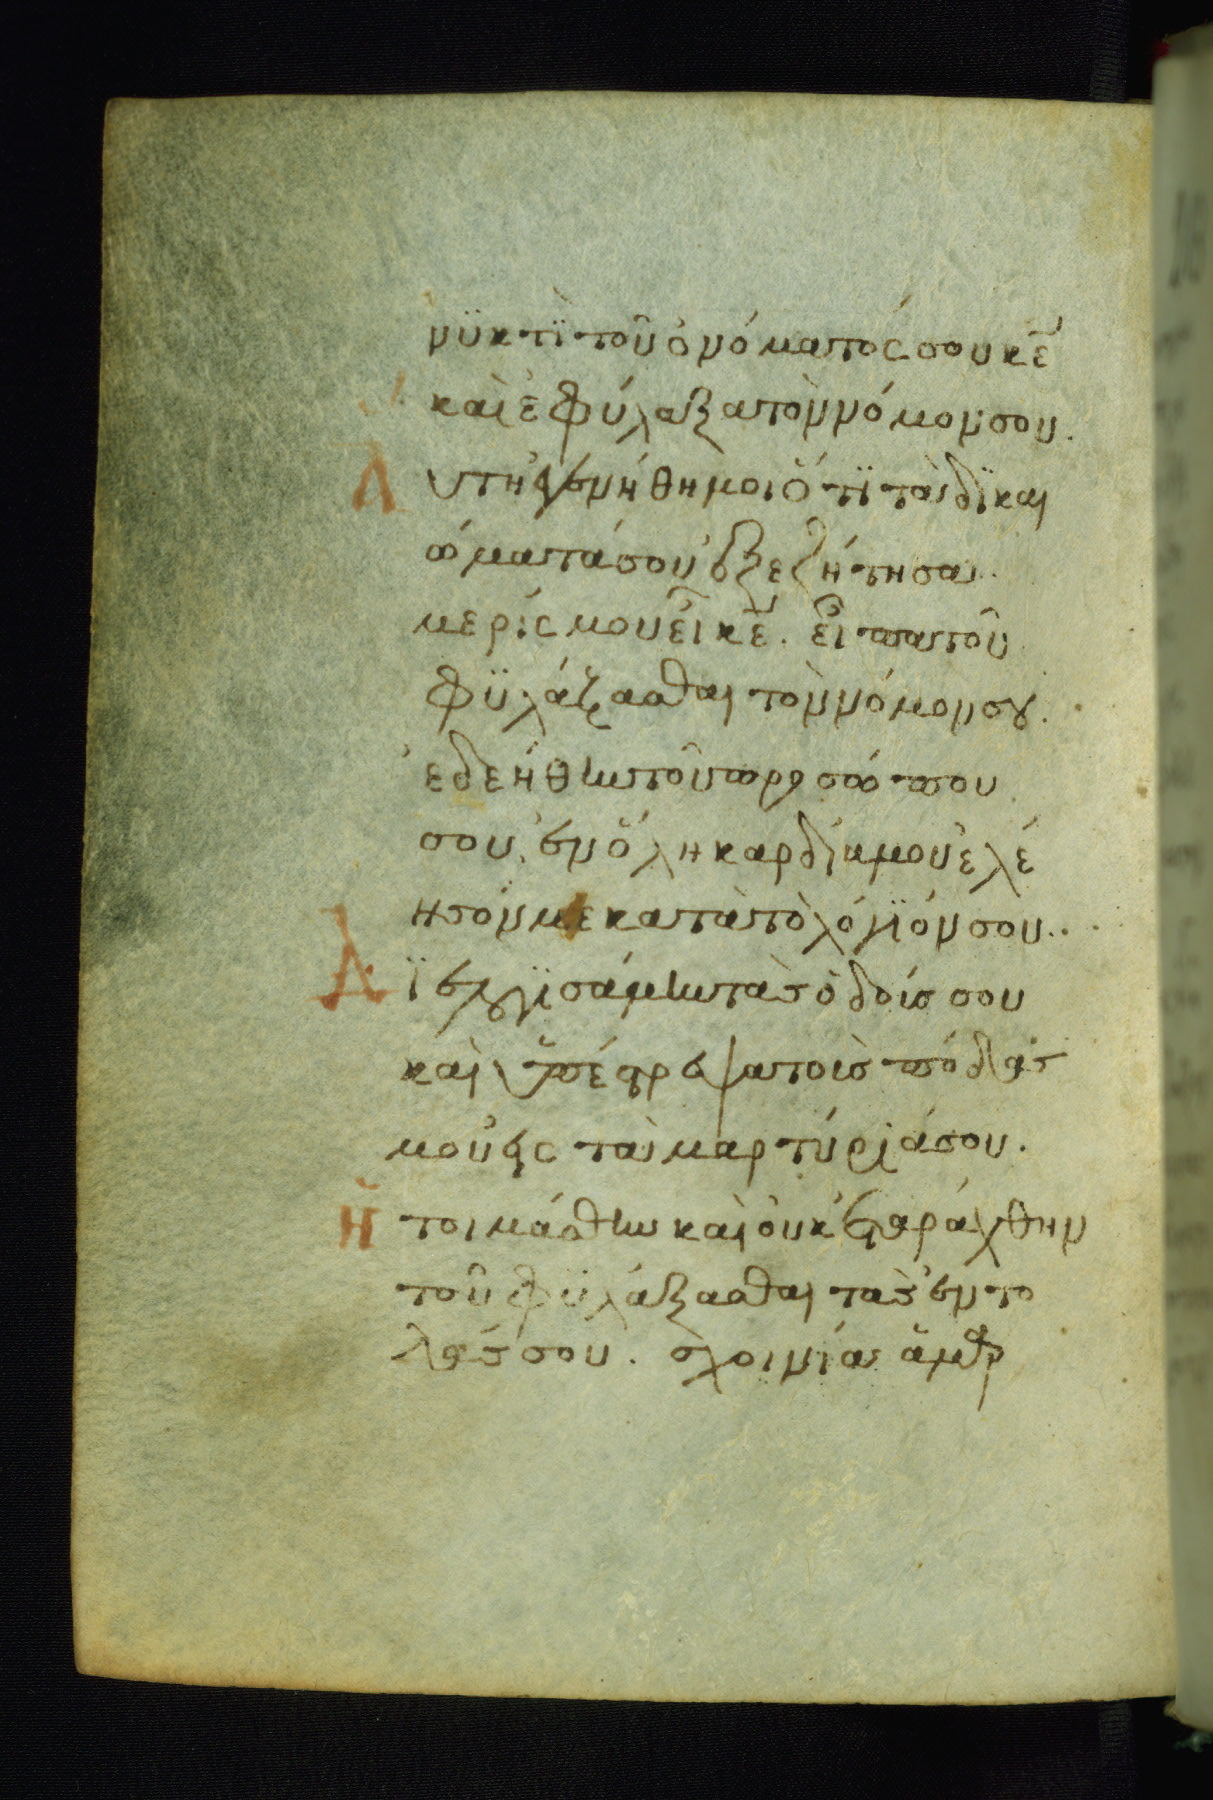 νϋκτὶ τοῦ ὀνόματός σου κ̅ε̅
καὶ ἐφύλαξα τὸν νόμον σου.
Αὕτη ἐγενήθη μοι ὅτι τὰ δϊκαι
ώματά σου ἐξεζήτησα.
μερίς μου εἶ κ̅ε̅. εἶπα τοῦ
φϋλάξασθαι τὸν νόμον σου.
ἐδεήθην τοῦ προσώπου
σου ἐν ὅλη καρδία μου ἐλέ
ησόν με κατὰ τὸ λόγϊόν σου..
Δϊελογϊσάμην τὰς ὁδούς σου
καὶ ἐπέστρεψα τοὺς πόδας
μου εἰς τὰ μαρτύριά σου.
Ἡτοιμάσθην καὶ οὐκ ἐταράχθην
τοῦ φϋλάξασθαι τὰς ἐντο
λάς σου. σχοινία ἁμαρ